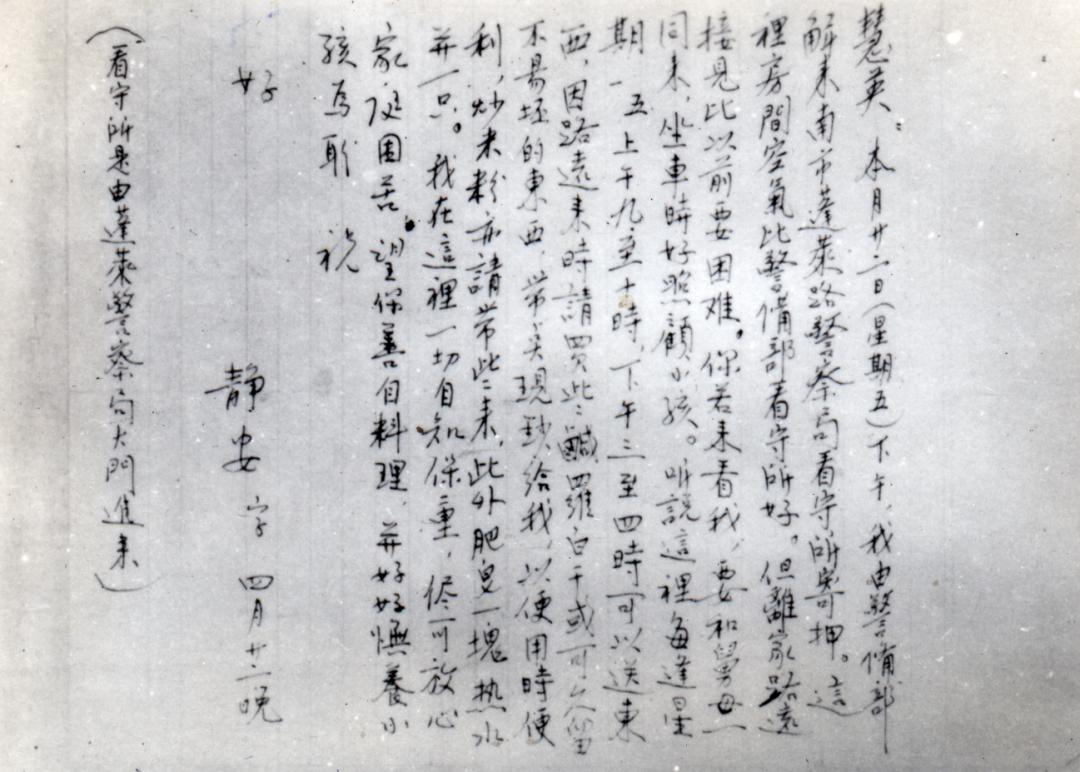 慧英：本月廿二日(星期五)下午，我由警備部
解来南市蓬萊路警察局看守所寄押。這
裡房間空氣比警備部看守所好。但離家路遠
接見比以前要困难。你若来看我，要和舅母一
同来，坐車時好照顧小孩。听説這裡每逢星
期一、五上午九至十時，下午三至四時可以送東
西，因路遠来時請買些鹹羅白干或可久留
不易坯的東西，帶关現鈔給我，以便用時便
利，炒米粉亦請帶些来，此外肥皂一塊热水
并一只。我在這裡一切自知保重，儘可放心
家庭困苦。望保善自料理，并好好憮養小
孩為盼 祝
好
静安 字 四月廿二晚
(看守所是由蓬萊警察局大門進来)